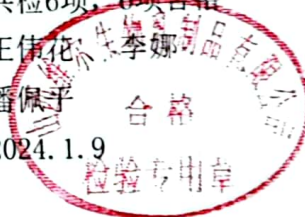 共检6项,6项合格
王伟花、李娜
潘佩平
2024.1.9
生物制品有限公司
合格
检验专用章